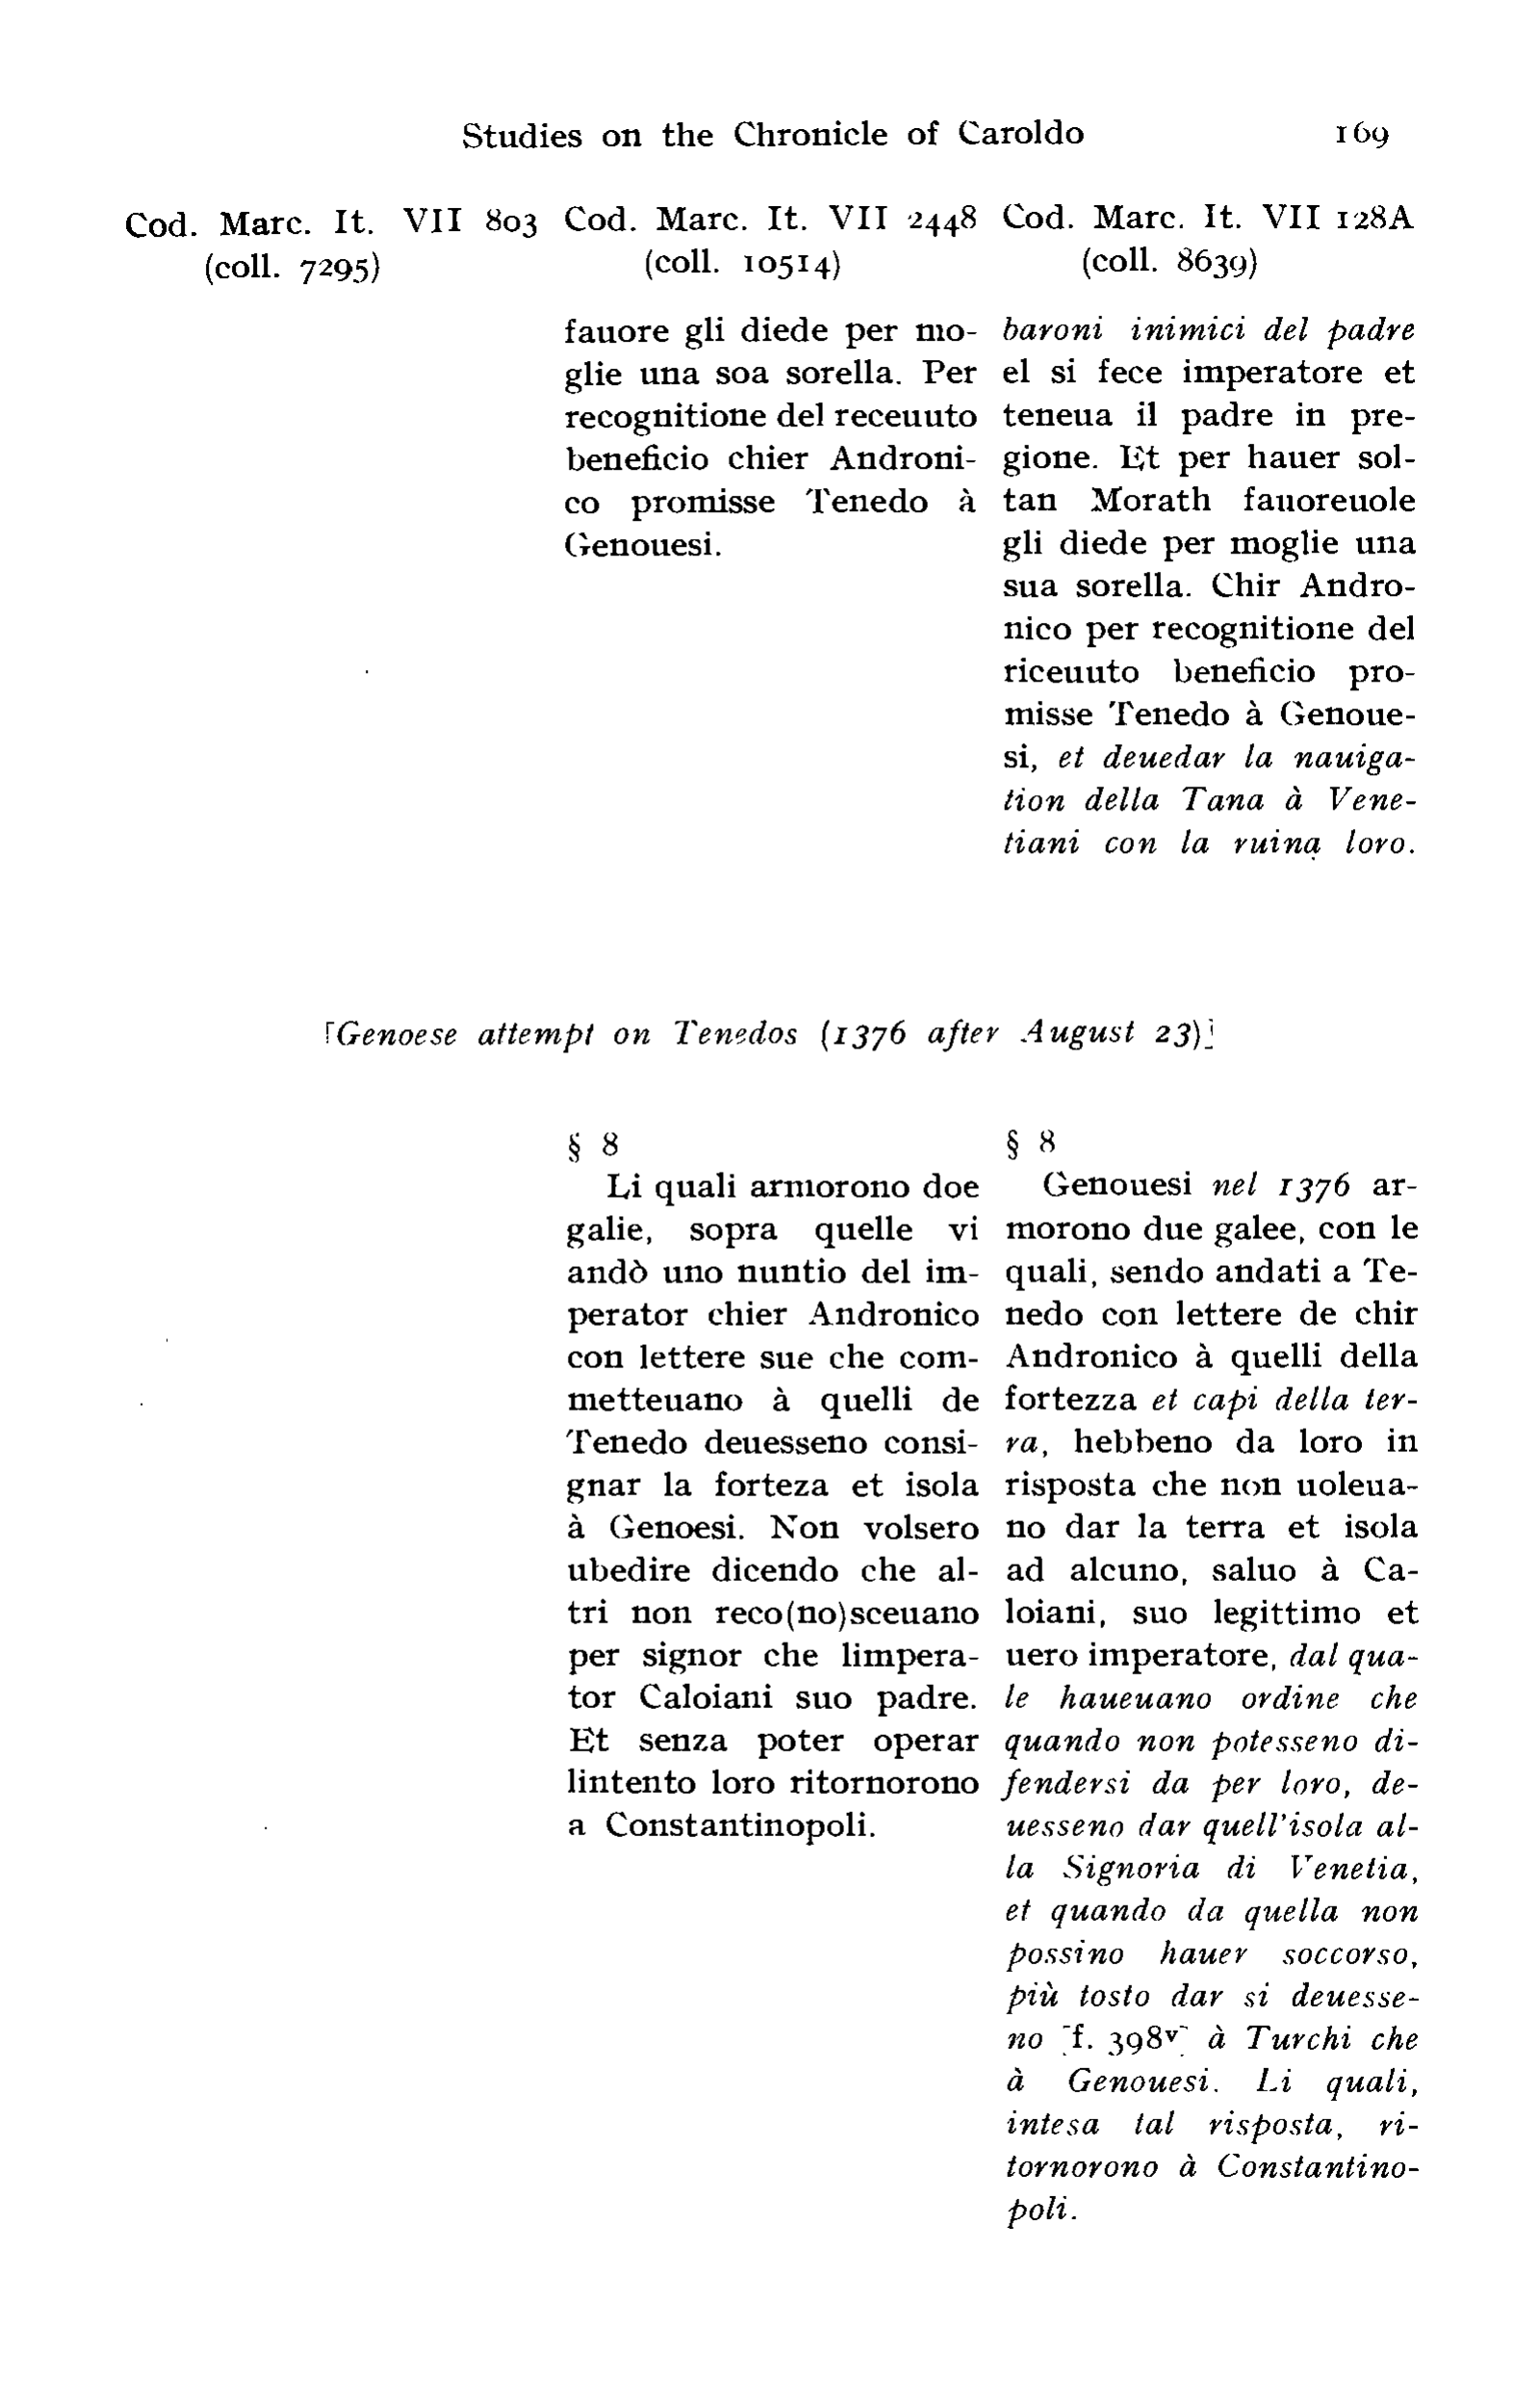 Studies on the Chronicle of Caroldo 169
Cod. Marc. It. VII 803
(coll. 7295)
Cod. Marc. It. VII 2448
(coll. 10514)
fauore gli diede per mo-
glie una soa sorella. Per
recognitione del receuuto
beneficio chier Androni-
co promisse Tenedo à
Genouesi.
Cod. Marc. It. VII 128A
(coll. 8639)
baroni inimici del padre
el si fece imperatore et
teneua il padre in pre-
gione. Et per hauer sol-
tan Morath fauoreuole
gli diede per moglie una
sua sorella. Chir Andro-
nico per recognitione del
riceuuto beneficio pro-
misse Tenedo à Genoue-
si, et deuedar la nauiga-
tion della Tana à Vene-
tiani con la ruina loro.
[Genoese attempt on Tenedos (1376 after August 23)]
§ 8
Li quali armorono doe
galie, sopra quelle vi
andò uno nuntio del im-
perator chier Andronico
con lettere sue che com-
metteuano à quelli de
Tenedo deuesseno consi-
gnar la forteza et isola
à Genoesi. Non volsero
ubedire dicendo che al-
tri non reco(no)sceuano
per signor che limpera-
tor Caloiani suo padre.
Et senza poter operar
lintento loro ritornorono
a Constantinopoli.
§ 8
Genouesi nel 1376 ar-
morono due galee, con le
quali, sendo andati a Te-
nedo con lettere de chir
Andronico à quelli della
fortezza et capi della ter-
ra, hebbeno da loro in
risposta che non uoleua-
no dar la terra et isola
ad alcuno, saluo à Ca-
loiani, suo legittimo et
uero imperatore, dal qua-
le haueuano ordine che
quando non potesseno di-
fendersi da per loro, de-
uesseno dar quell'isola al-
la Signoria di Venetia,
et quando da quella non
possino hauer soccorso,
più tosto dar si deuesse-
no [f. 398v] à Turchi che
à Genouesi. Li quali,
intesa tal risposta, ri-
tornorono à Constantino-
poli.